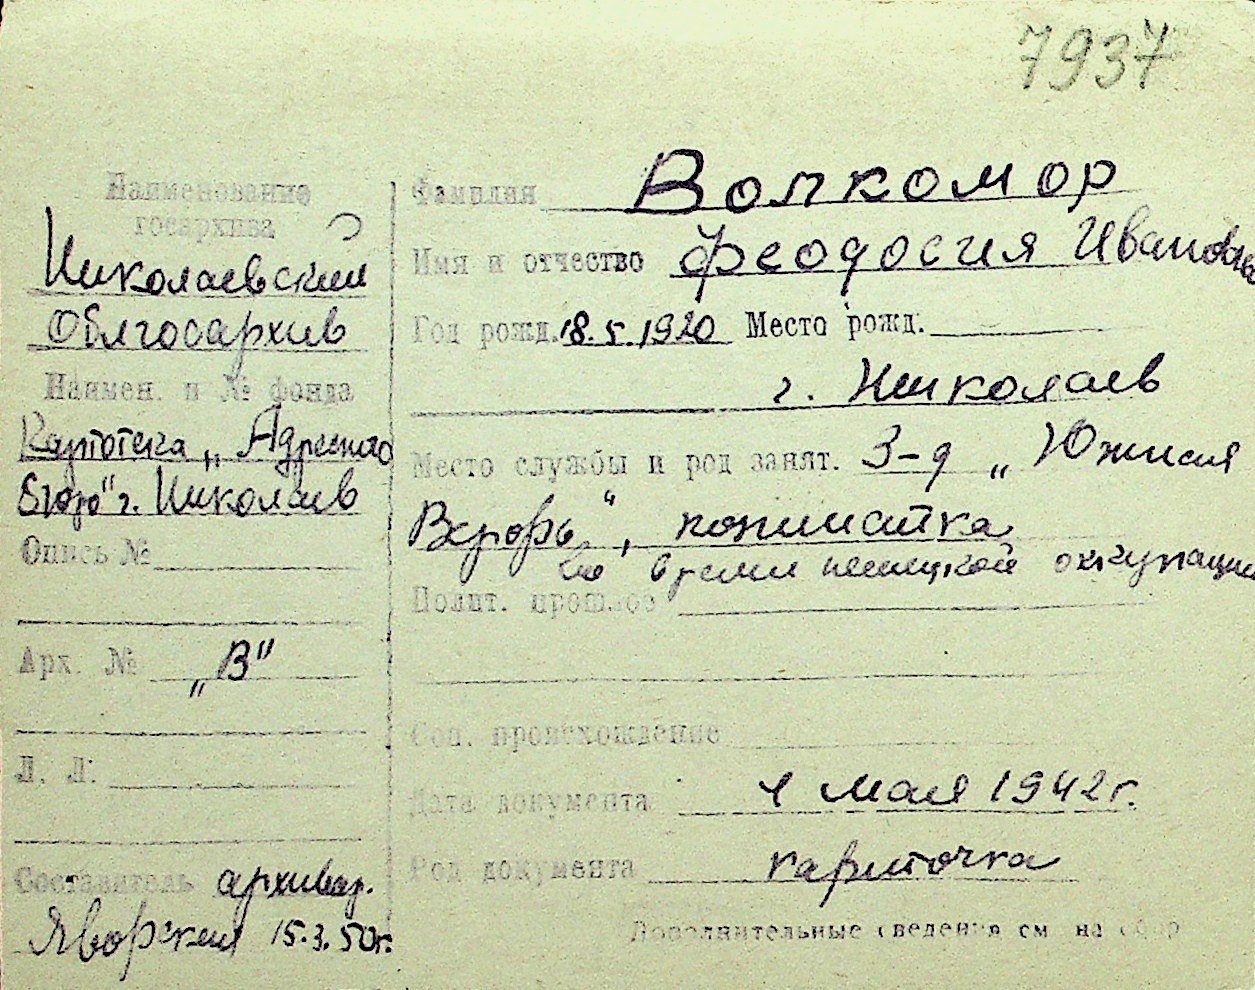 7937
Наименование
госархива
Николаевский
Облгосархив
Наимен. и № фонда
Картотека „Адресного
бюро" г. Николаев
Опись №
Арх. № „В"
Л. Л.
Составитель архивар.
Яворская 15.3.50г.
Фамилия Волкомор
Имя и отчество Феодосия Ивановна
Год рожд. 18.5.1920 Место рожд.
г. Николаев
Место службы и род занят. З-д „Южная
Верфь",
во время немецкой оккупации
Полит. прошлое
Соц. происхождение
Дата документа 1 мая 1942г.
Род документа карточка
Дополнительные сведения см на обор